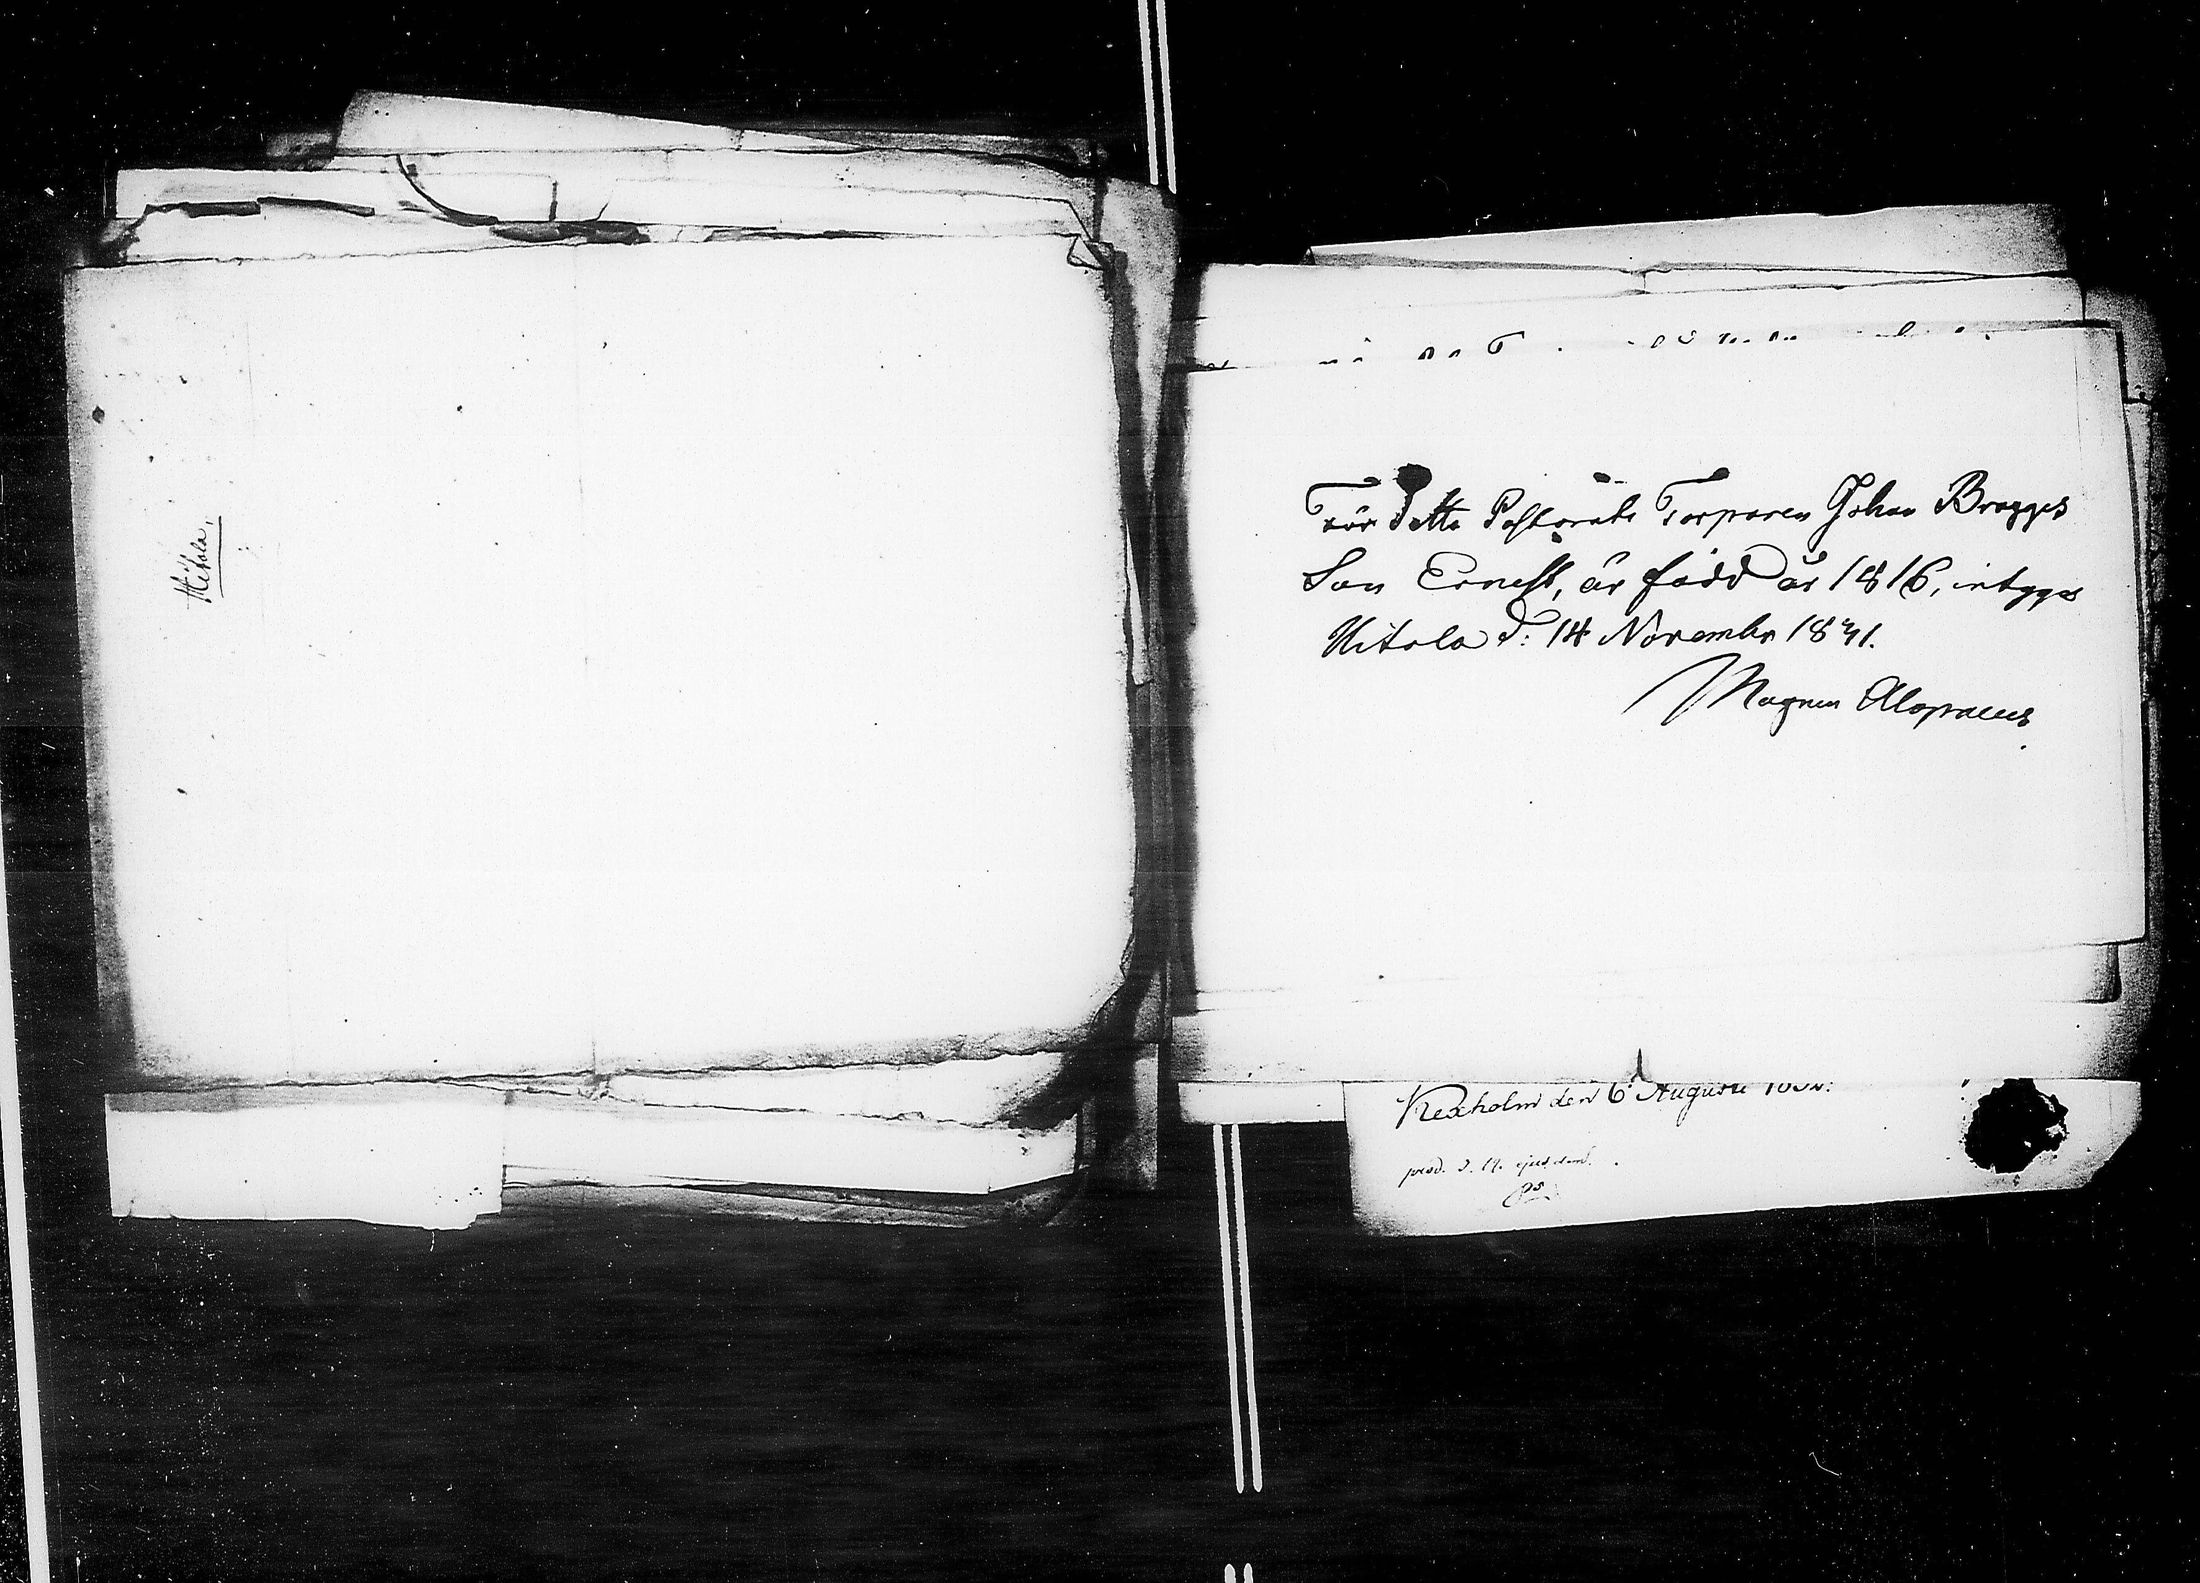 Hitola.
För detta Pastorats Torparen Johan Bragges
Son Ernest, är född år 1816, intygas
Hitola d: 14 Novembr 1831.
Magnus Alopaeus
Kexholm den 6 Augusti
prod. d. 19. ejusdem.